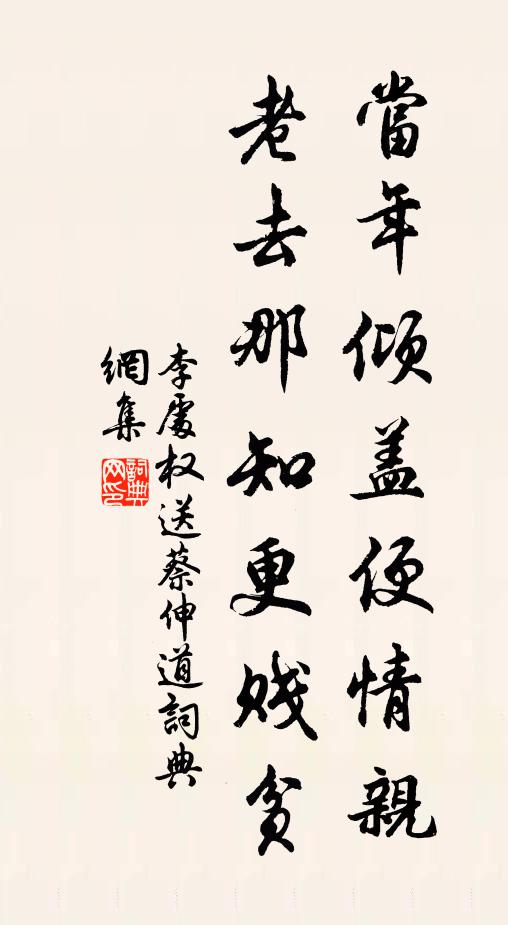 當年傾盖便情親
老去那知更贱貧
李處权送蔡伸道詞典
網集
詞典
网印